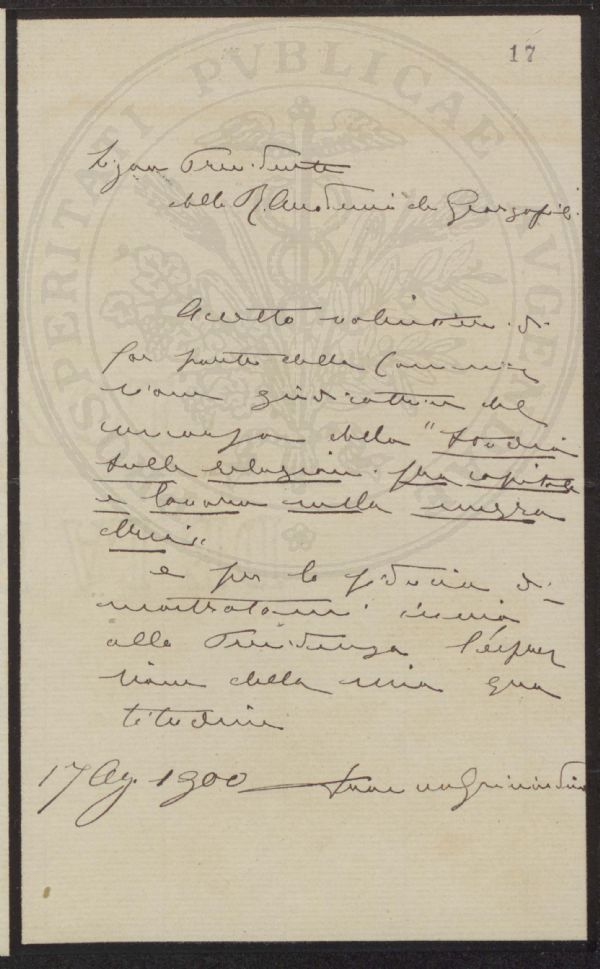 17
PROSPERITATI PVBLICAE
Presidente
della R. Accademia dei Georgofili
Accetto volentieri di
far parte della Commis
sione giudicatrice del
concorso dello "Studio
sulle relazioni fra capitale
e lavoro nella
e per la fiducia di-
mostratami invio
alla Presidenza l'espres
sione della mia gra
titudine
17 Ag. 1900